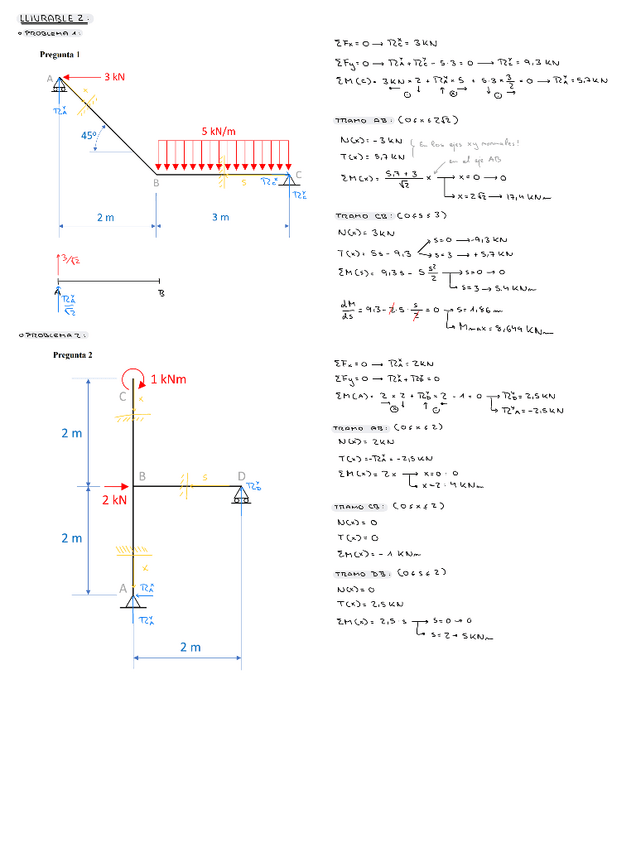 LLIURABLE 2:
○ PROBLEMA 1:
Pregunta 1
A
3 kN
R_A^Y
x
45º
5 kN/m
B
s
R_C^X
C
R_C^Y
2 m
3 m
3/√2
A
B
R_A^Y/√2
ΣFx = 0 → R_C^X = 3 kN
ΣFy = 0 → R_A^Y + R_C^Y - 5·3 = 0 → R_C^Y = 9,3 kN
ΣM(C) = 3kN × 2 + R_A^Y × 5 + 5·3 × 3/2 = 0 → R_A^Y = 5,7 kN
TRAMO AB: (0≤x≤2√2)
N(x) = -3kN
T(x) = 5,7 kN
en los ejes xy normales!
en el eje AB
ΣM(x) = 5,7+3/√2 x → x=0 → 0
x=2√2 → 17,4 kNm
TRAMO CB: (0≤s≤3)
N(x) = 3kN
T(x) = 5s - 9,3 → s=0 → -9,3 kN
s=3 → +5,7 kN
ΣM(s) = 9,3s - 5 s²/2 → s=0 → 0
s=3 → 5.4 kNm
dM/ds = 9,3 - 2·5·s/2 = 0 → s=1,86 m
Mmax = 8,649 kNm
○ PROBLEMA 2:
Pregunta 2
1 kNm
C
x
2 m
B
s
D
2 kN
R_D^Y
2 m
x
A
R_A^X
R_A^Y
2 m
ΣFx = 0 → R_A^X = 2kN
ΣFy = 0 → R_A^Y + R_D^Y = 0
ΣM(A) = 2 × 2 + R_D^Y × 2 - 1 = 0 → R_D^Y = 2,5 kN
R_A^Y = -2,5 kN
TRAMO AB: (0≤x≤2)
N(x) = 2kN
T(x) = -R_A^Y = -2,5 kN
ΣM(x) = 2x → x=0 = 0
x=2 = 4 kNm
TRAMO CB: (0≤x≤2)
N(x) = 0
T(x) = 0
ΣM(x) = -1 kNm
TRAMO DB: (0≤s≤2)
N(x) = 0
T(x) = 2,5 kN
ΣM(x) = 2,5·s → s=0 → 0
s=2 → 5kNm